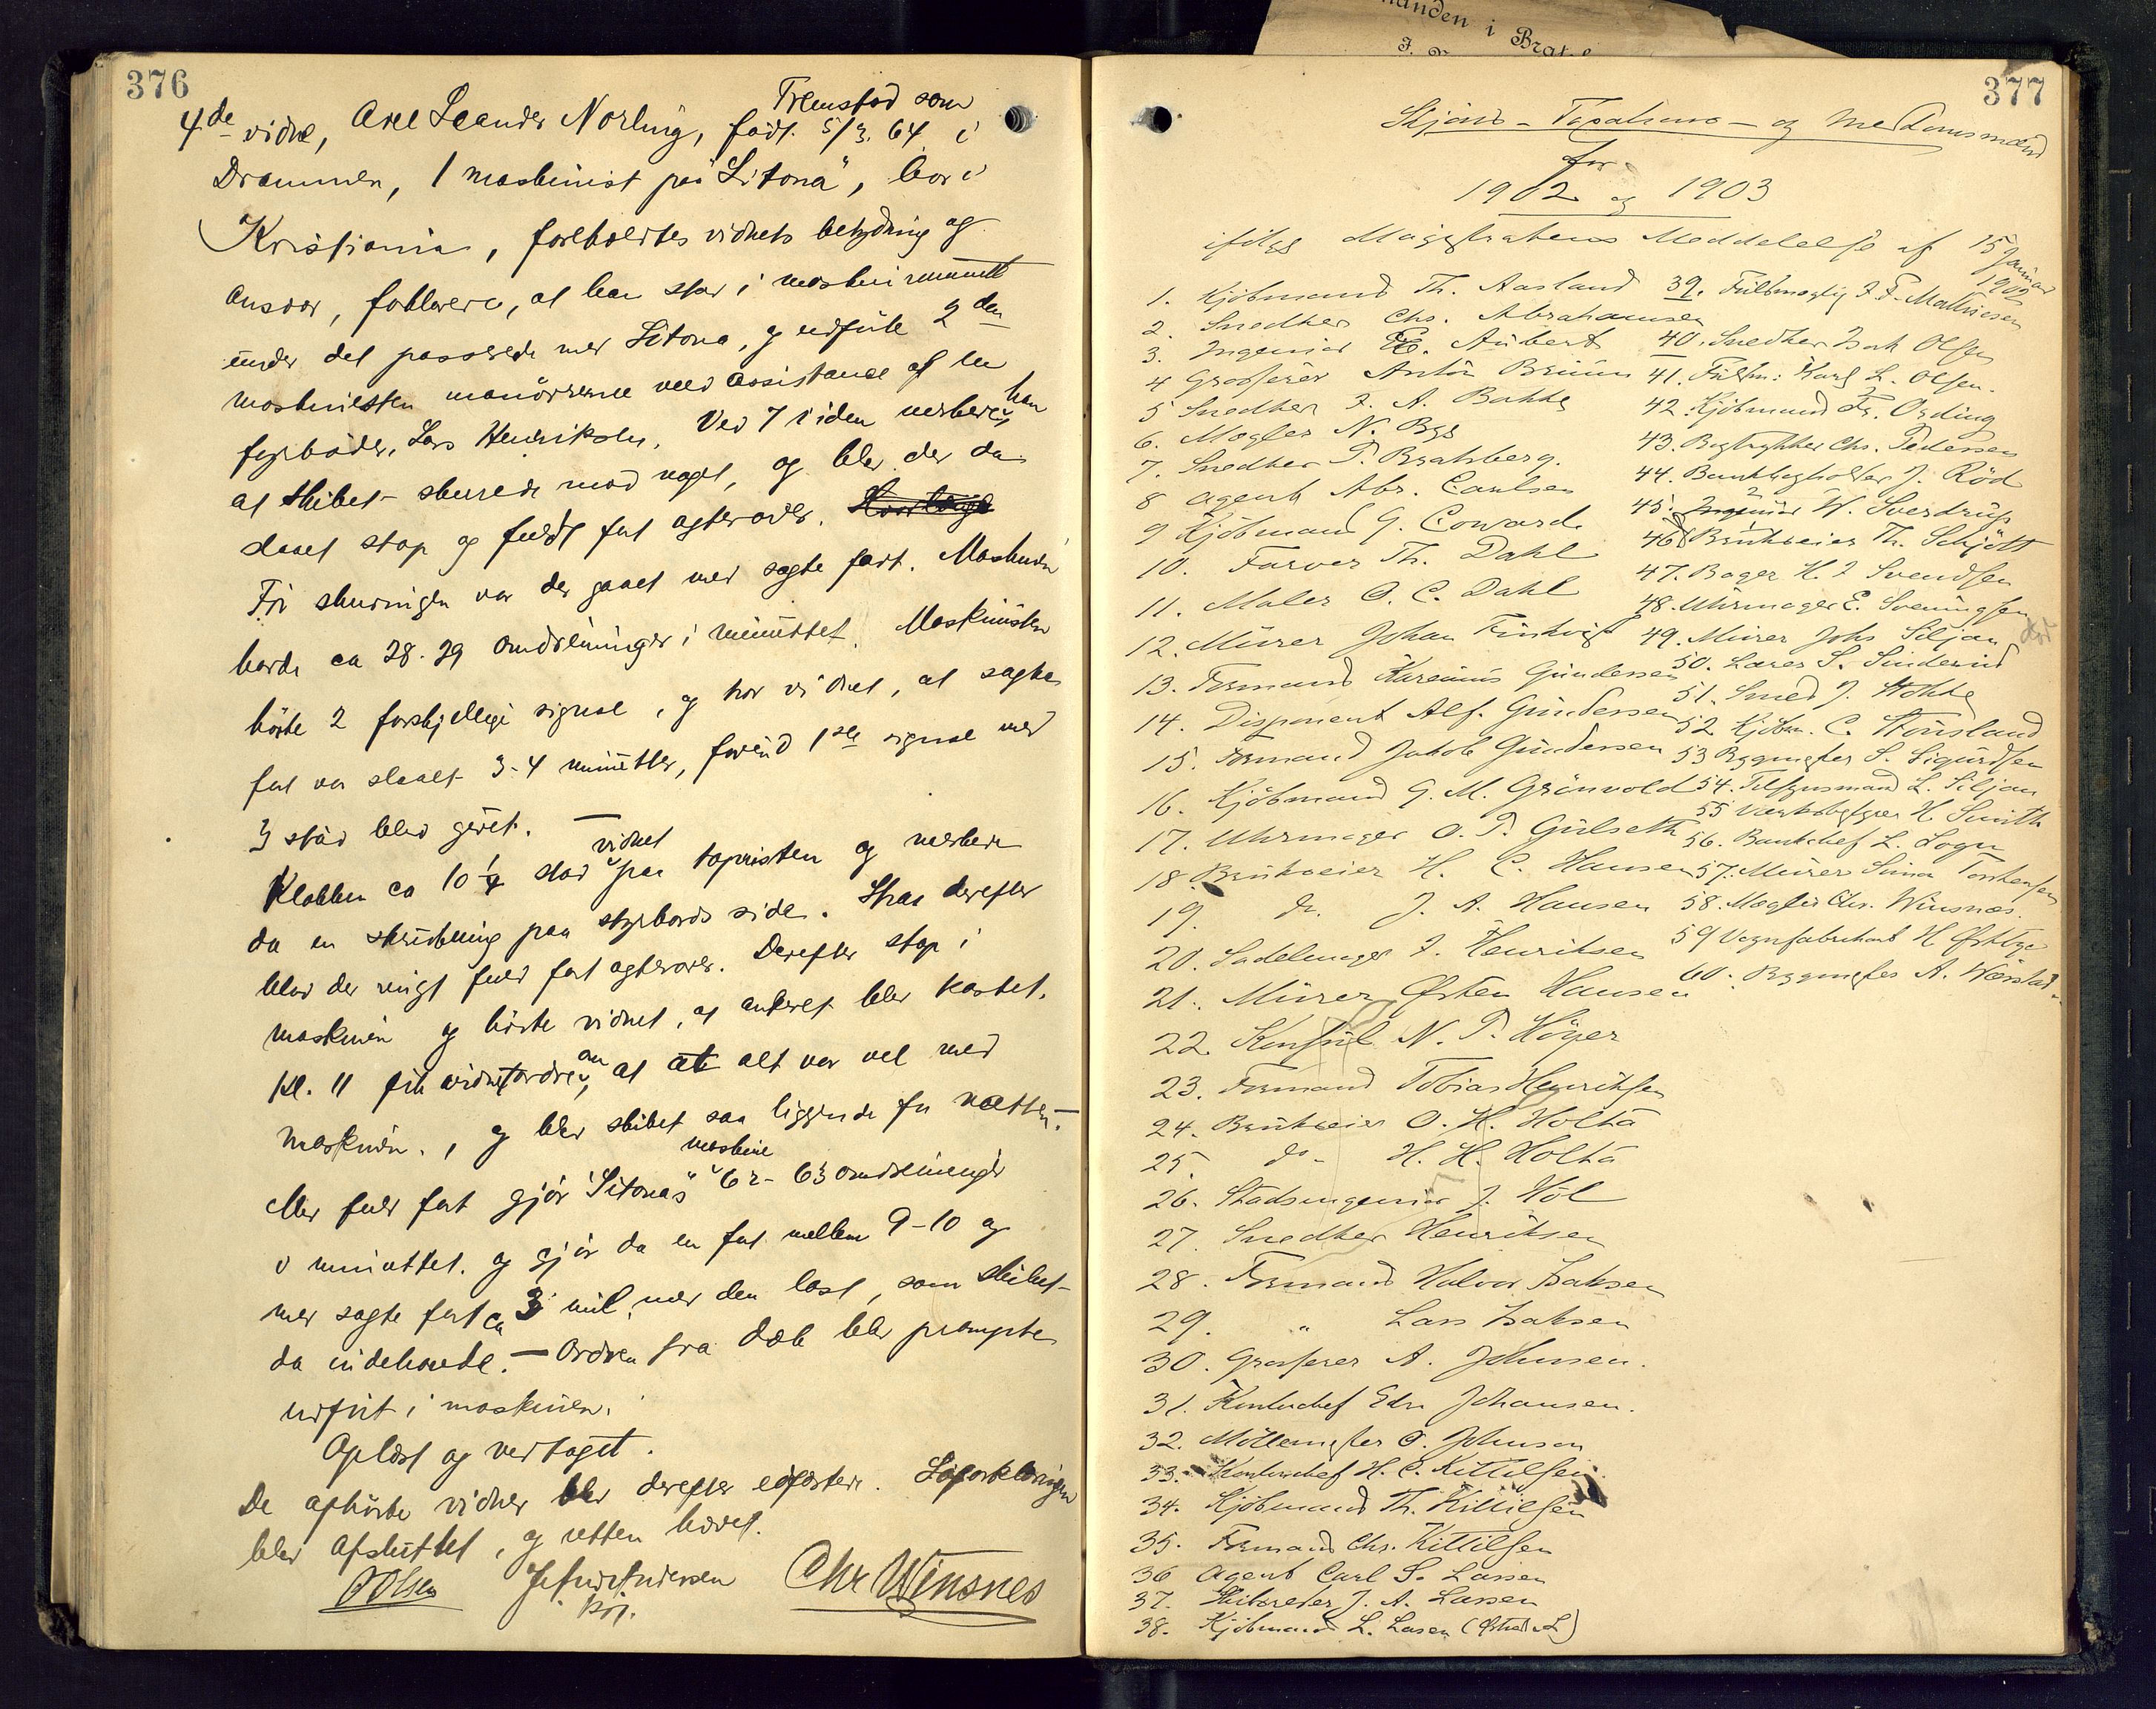 376
Fremstod som
4de vidne, Axel Leander Norling, født 5/3. 64 i
Drammen, 1 maskinist på "Sitona", bor i
Kristiania, foreholdtes vidnets betydning og
ansvar, forklarer, at han stod i maskinrummet
under det passerede med Sitona, og udførte 2den
maskinisten manövrerne med assistance af en
fyrböder, Lars Henriksen. Ved 7 tiden merkede han
at skibet skurede mod noget, og blev der da
slaaet stop og fuld fart agterover.
Før skuringen var der gaaet med sagte fart. Maskinen
havde ca 28-29 omdreininger i minuttet. Maskinisten
hörte 2 forskjellige signal, og tror vidnet, at sagte
fart var slaaet 3-4 minutter, forend 1ste signal med
3 stöd blev givet.
Klokken ca 10 1/4 stod vidnet paa toprister og merkede
da en skrubbning paa styrbords side. Strax derefter
blev der ringt fuld fart agterover. Derefter stop i
maskinen og hörte vidnet, at ankeret blev kastet.
Kl. 11 fik vidnet ordre om, at alt var vel med
maskinen, og blev skibet saa liggende for natten.
Med fuld fart gjör "Sitonas" maskine 62-63 omdreininger
i minuttet. og gjör da en fart mellem 9-10 og
med sagte fart ca 3 mil, med den last, som skibet
da indehavde. - Ordren fra dæk blev prompte
udført i maskinen.
Oplæst og vedtaget.
De afhörte vidner blev derefter edfæstede. Søforklaringen
blev afsluttet, og retten hævet.
O Olsen Chr Winsnes
377
Skjøns- Taxations- og Meddomsmænd
for
1902 og 1903
ifølge Magistratens Meddelelse af 15 Januar 1902
1. Kjøbmand Th. Aasland
2. Snedker Chs. Abrahamsen
3. Ingeniør E. Aubert
4 Grosserer Anton Bruun
5 Snedker J. A. Bakke
6. Mægler N. Bys
7. Snedker P. Bratsberg.
8 Agent Abr. Carlsen
9 Kjøbmand G. Coward
10. Farver Th. Dahl
11. Maler O. C. Dahl
12. Murer Johan
13. Formand Kareinus Gundersen
14. Disponent Alf. Gundersen
15. Formand Jakob Gundersen
16. Kjøbmand G. M. Grönvold
17. Uhrmager O. P. Gulseth
18. Brukseier H. C. Hansen
19. do. J. A. Hansen
20. Sadelmager J. Henriksen
21. Murer Østen Hansen
22. Konsul N. P. Höyer
23. Formand Tobias Henriksen
24. Brukseier O. H. Holta
25. do - H. H. Holta
26. Stadsingeniør J. Hol
27. Snedker Henriksen
28. Formand Halvor Isaksen
29. " Lars Isaksen
30. Grosserer A. Johnsen.
31. Kontorchef Edv. Johansen.
32. Möllemester O. Johnsen
33. Kontorchef H. C. Kittilsen.
34. Kjøbmand Th. Kittilsen
35. Formand Chr. Kittilsen
36 Agent Carl S. Larsen
37. Skibsreder J. A. Larsen
38. Kjøbmand L. Larsen
39. Fuldmægtig J. F. Mathiesen
40. Snedker Isak Olsen
41. Fuldm: Karl L. Olsen.
42. Kjøbmand Fr. Ording
43. Bogtrykker Chs. Pedersen
44. Bankbogholder J. Röd
45. Ingeniør W. Sverdrup
46 Brukseier Th. Schjött
47. Bager H. J Svendsen
48. Uhrmager E. Sveningsen
49. Murer Johs Siljan død
50. Lærer S. Sinderud
51. Smed J. Stokke
52. Kjöbm. C. Stousland
53 Bygmester S. Sigurdsen
54. Tilsynsmand L. Siljan
55 H. Smith
56. Bankchef L. Sogn
57. Murer Simon Torstensen
58. Mægler Chr. Winsnes.
59 Vognfabrikant H Østbye
60. Bygmester A. Wærstad.